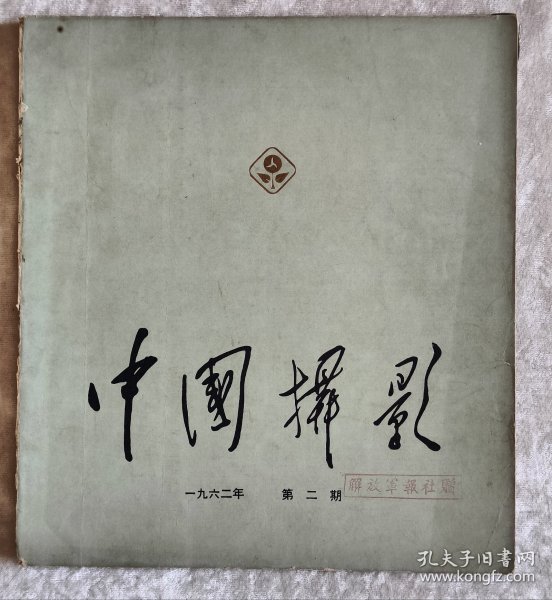 中國攝影
一九六二年 第二期
解放軍報社贈
孔夫子旧书网
www.kongfz.com